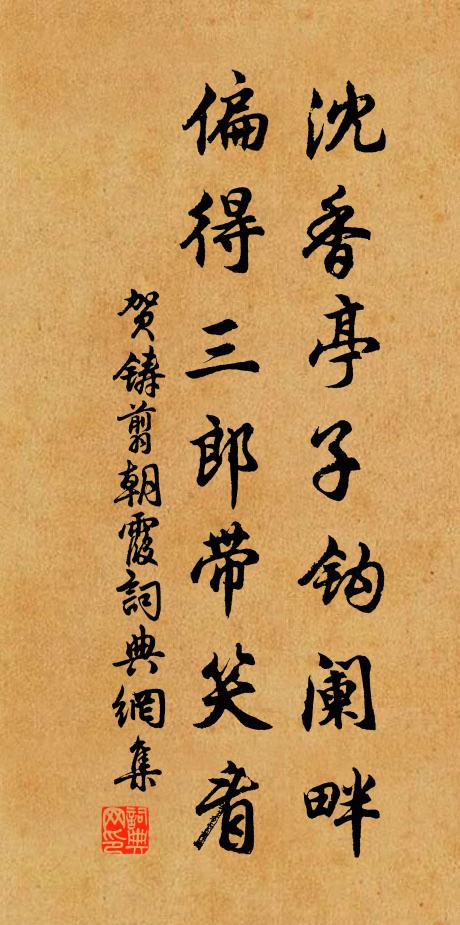 沈香亭子钩阑畔
偏得三郎带笑看
贺铸翦朝霞詞典網集
詞典网印